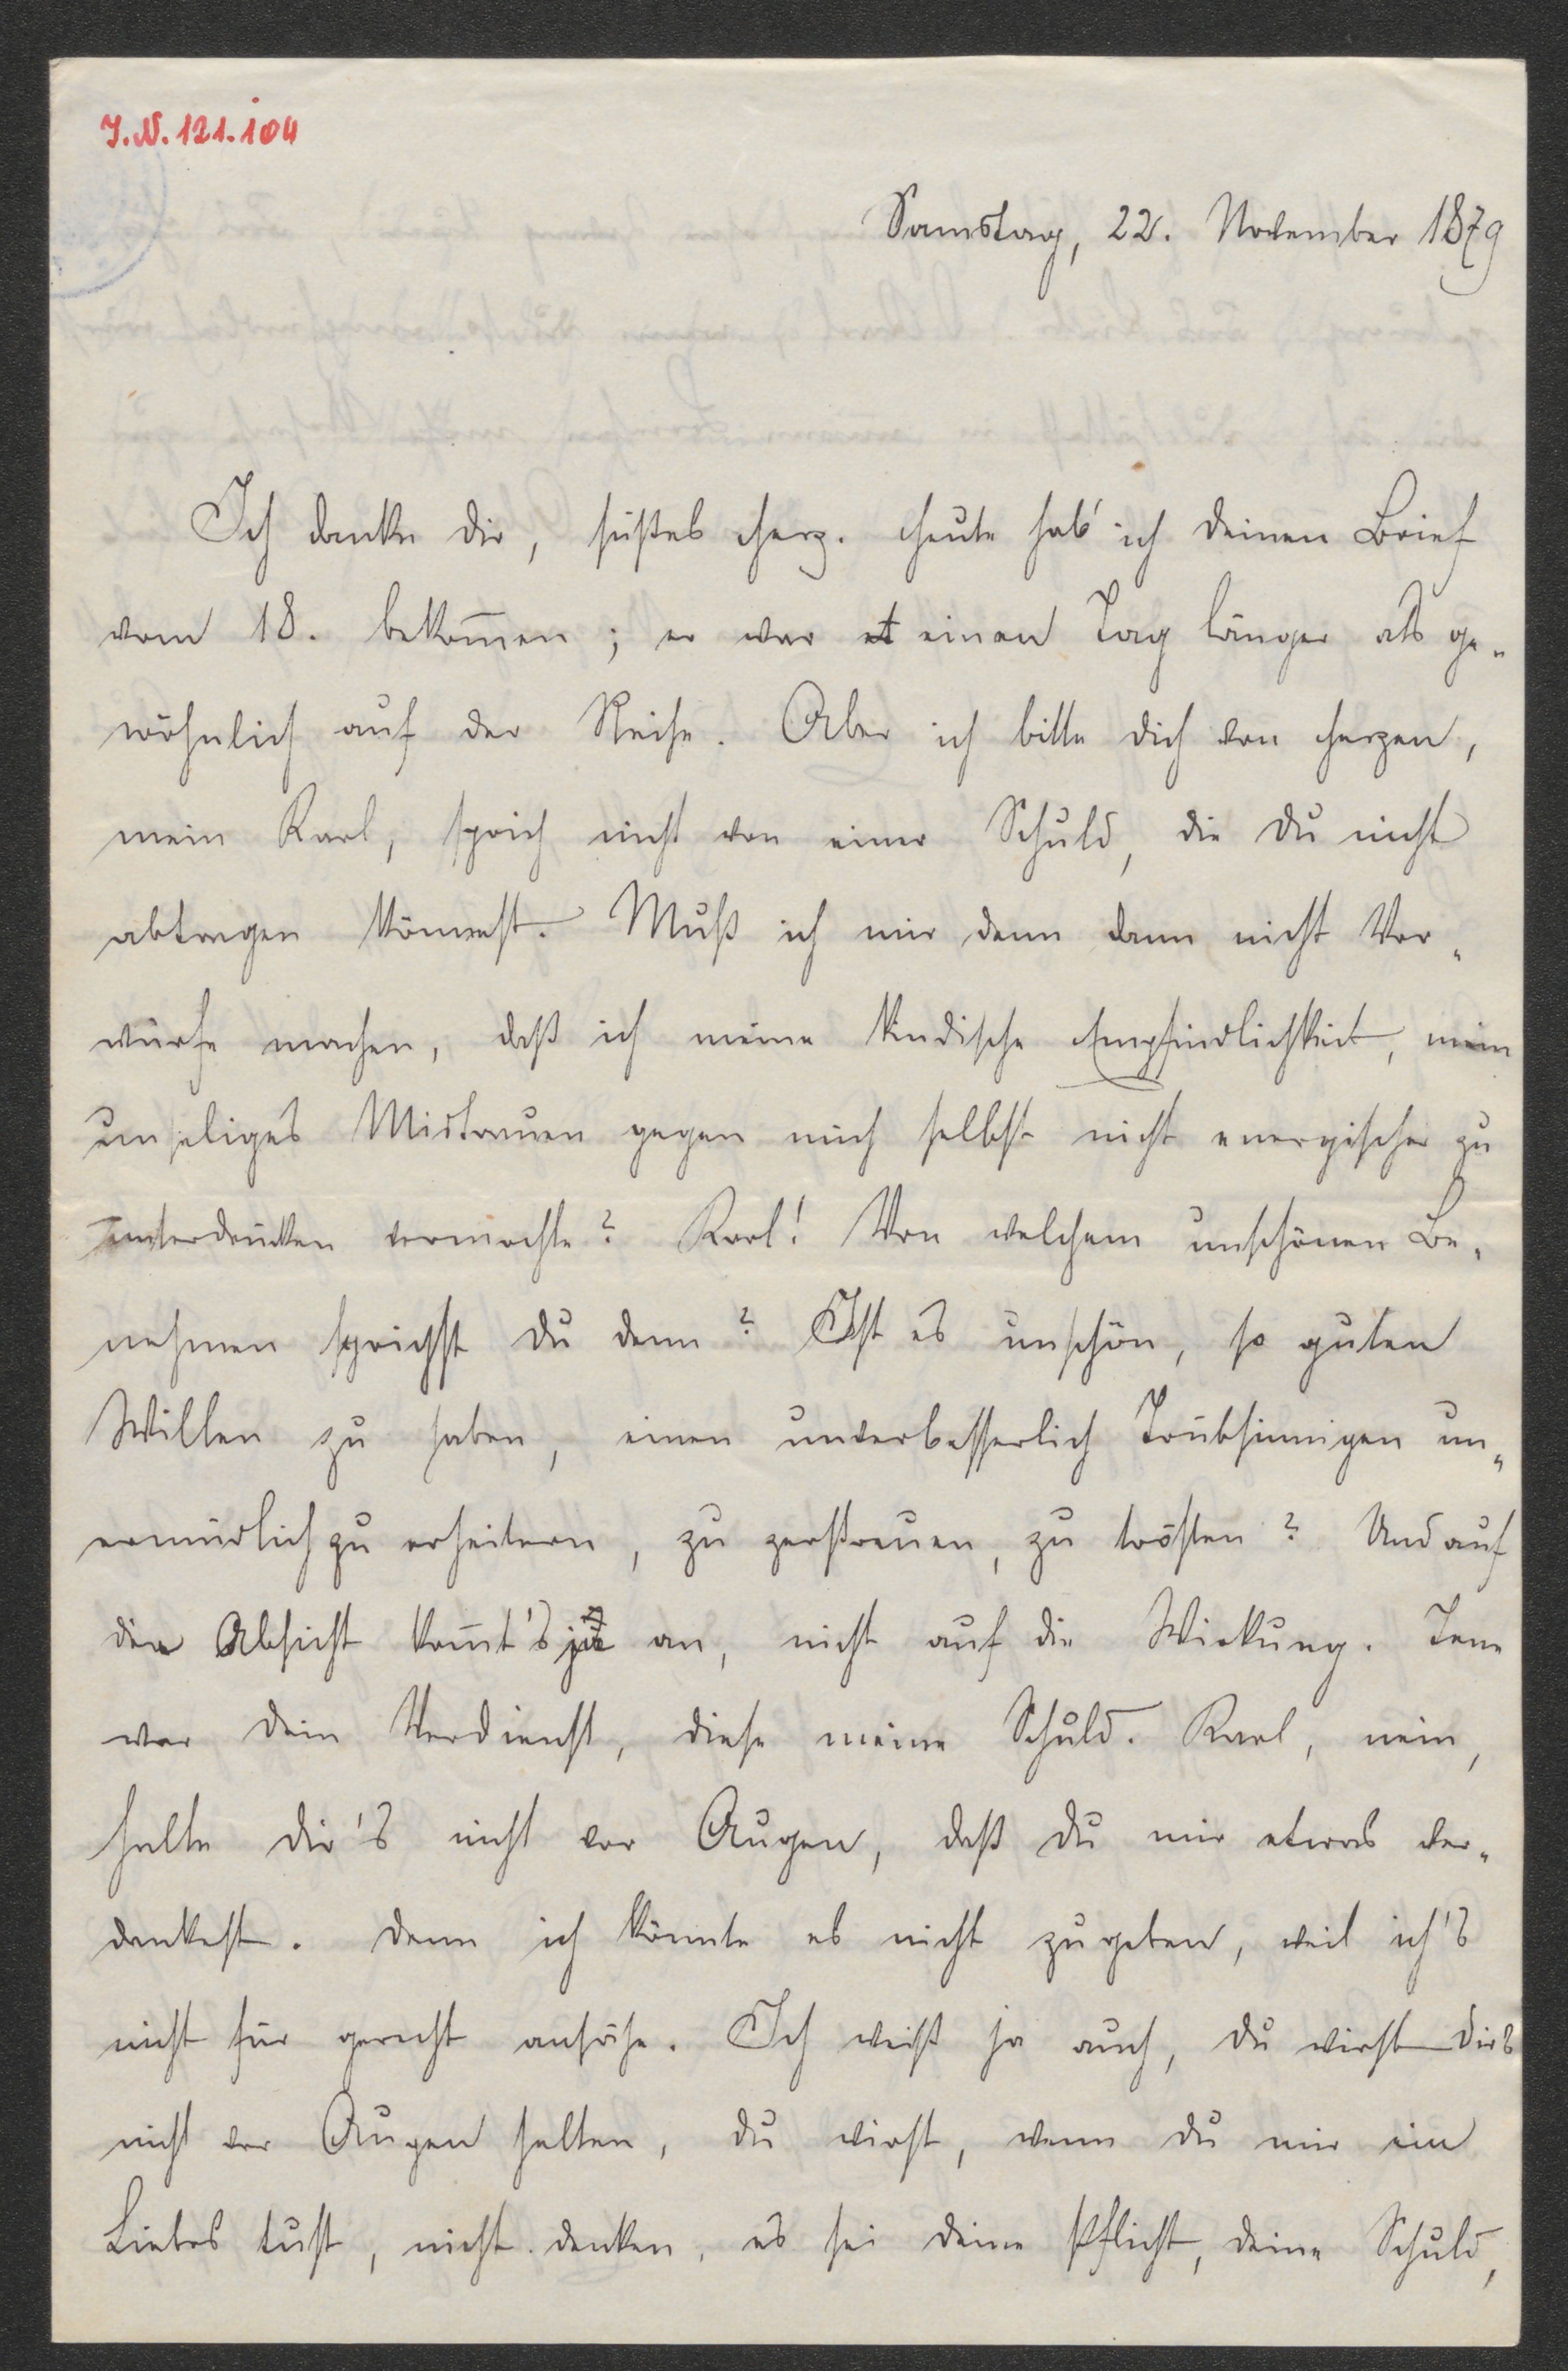 I.N. 121.104
Samstag, 22. November 1879
Ich danke dir, süßes Herz. Heute hab' ich deinen Brief
vom 18. bekom̄en; er war et einen Tag länger als ge-
wöhnlich auf der Reise. Aber ich bitte dich von Herzen,
mein Karl, sprich nicht von einer Schuld, die du nicht
abtragen könnest. Muß ich mir denn dann nicht Vor-
würfe machen, daß ich meine kindische Empfindlichkeit, mein
unseliges Mistrauen gegen mich selbst nicht energischer zu
unterdrücken vermochte? Karl! Von welchem unschönen Be-
nehmen sprichst du denn? Ist es unschön, so guten
Willen zu haben, einen unverbesserlich Trübsinnigen un-
ermüdlich zu erheitern, zu zerstreuen, zu trösten? Und auf
die Absicht kom̄t's ja an, nicht auf die Wirkung. Jene
war dein Verdienst, diese meine Schuld. Karl, nein,
halte dir's nicht vor Augen, daß du mir etwas ver-
dankest. Denn ich könnte es nicht zugeben, weil ich's
nicht für gerecht ansähe. Ich weiß ja auch, du wirst dirs
nicht vor Augen halten, du wirst, wenn du mir ein
Liebes tust, nicht denken, es sei deine Pflicht, deine Schuld,